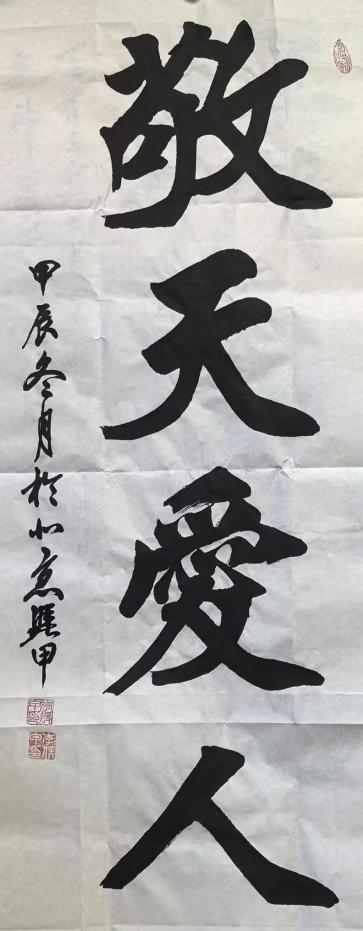 敬天愛人
甲辰冬月於北京興甲